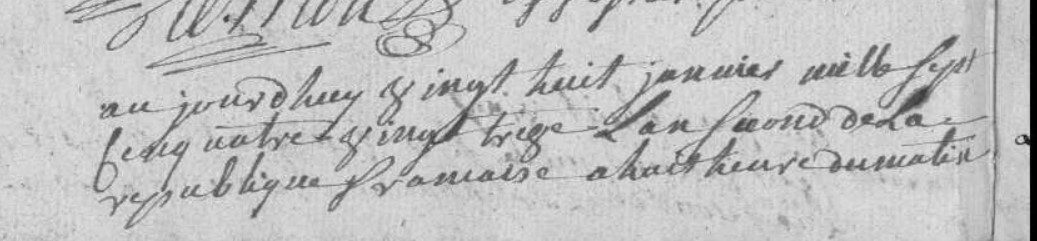 au jourdhuy vingt huit janvier mille sept
Cenq uatre vingt treze Lan Second de La
republique francaise a huit heure du matin